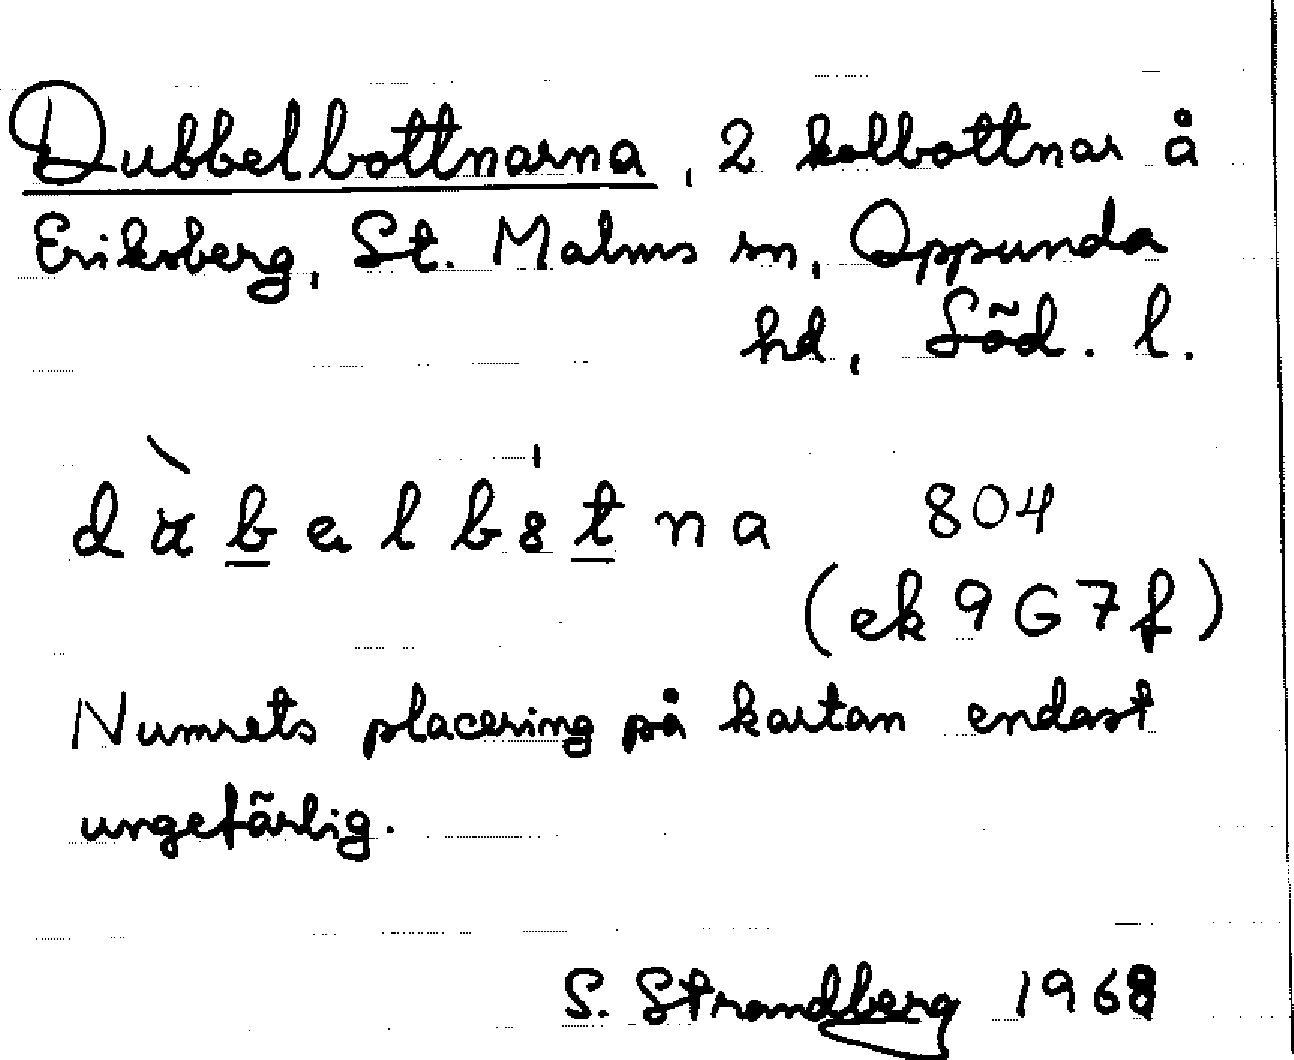 Dubbelbottnarna, 2 kolbottnar å
Eriksberg, St. Malms sn, Oppunda
hd, Söd. l.
804
(ek 9G7f)
Numrets placering på kartan endast
ungefärlig.
S. Strandberg 1968